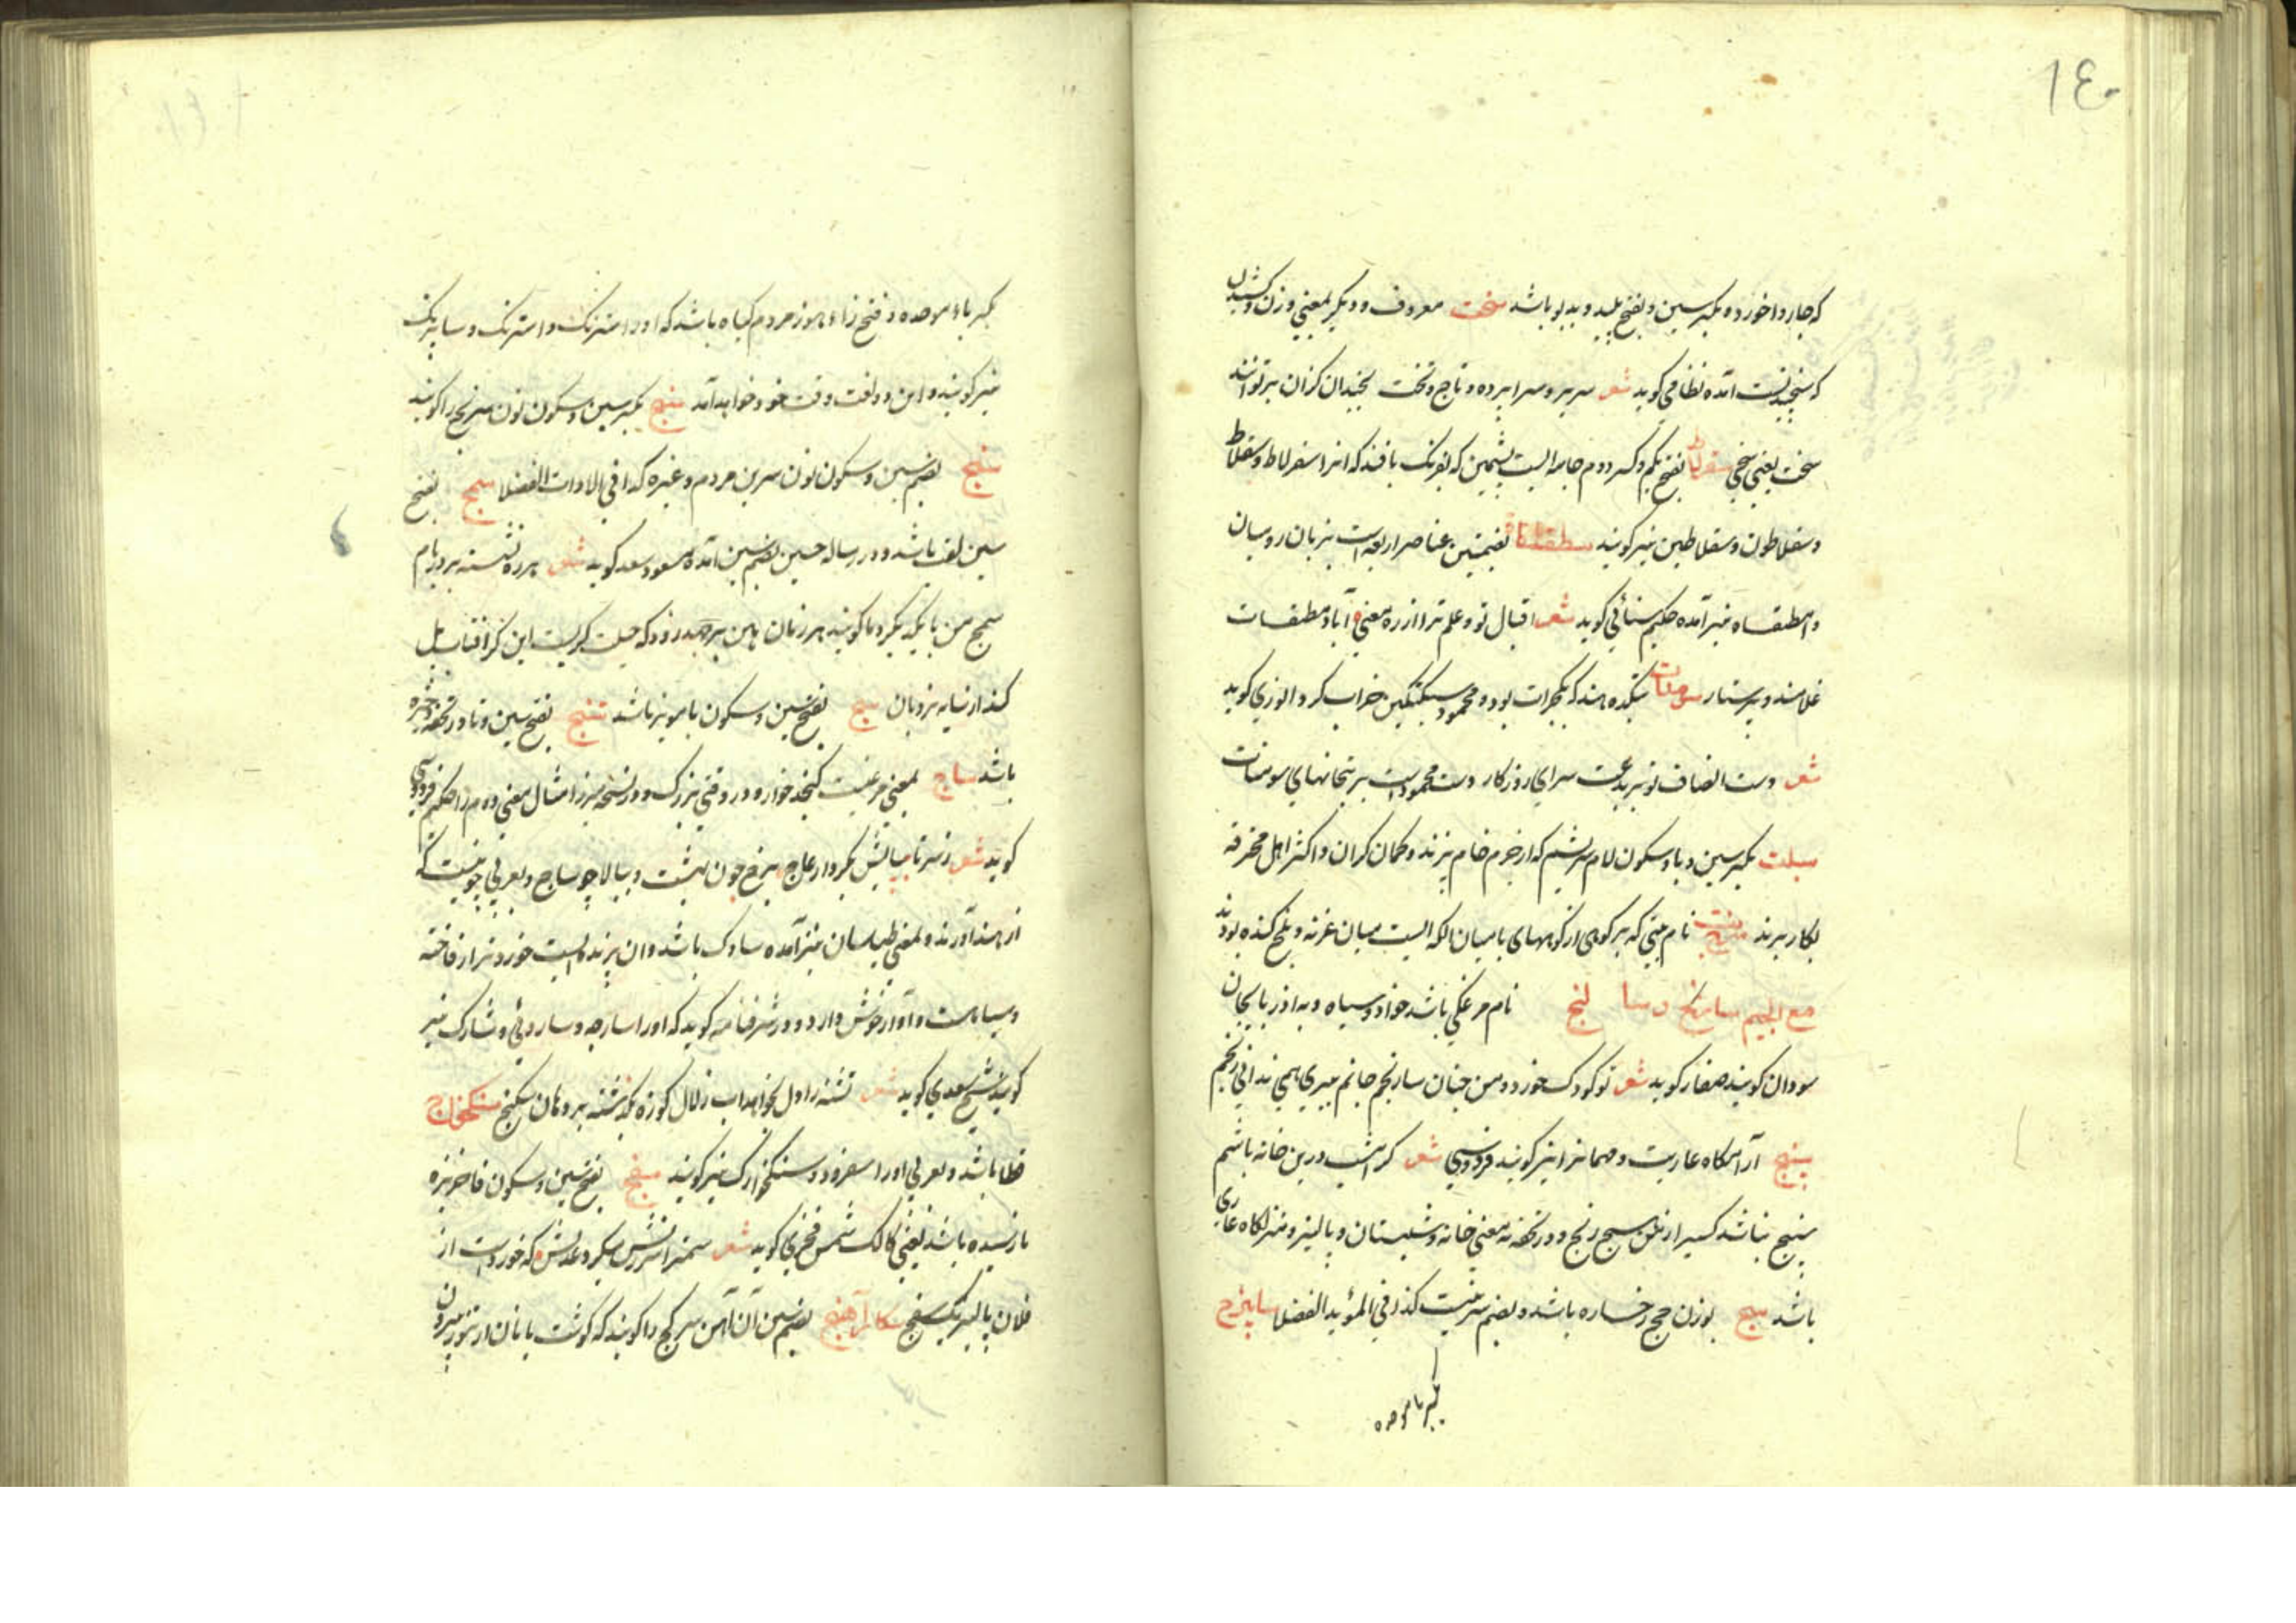 ١٤٠
که چاروا خورده بکسر سین و بفتح پلید و بدبو باشد سخت معروف و دیگر بمعنی وزن و کشیدن
که سنجیدنست آمده نظامی گوید شعر سریر و سراپرده و تاج و تخت نچندان گران برتوانند
سخت یعنی سختی سقرلاط بفتح یکم و کسر دوم جامه ایست پشمین که بفرنگ بافند که انرا سقرلاط و سقلاط
و سقلاطون و سقلاطین نیز گویند سطقسات بضمتین عناصر اربعه است بزبان رومیان
و اسطقسات نیز آمده حکیم سنائی گوید شعر اقبال تو و علم ترا از ره معنی آباد سطقسات
غلامند و پرستار سومنات بتکده هند که بگجرات بود و محمود سبکتکین خراب کرد انوری گوید
شعر دست انصاف تو بر بدعت سرای روزگار دست محمودست بر بتخانهای سومنات
سبلت بکسر سین و با و سکون لام سریشم که از چرم خام پزند و کمان گران و اکثر اهل محترفه
بکار برند نام بتی که بر کوهی از کوههای بامیان الکه ایست میان غزنه و بلخ کنده بودند
مع الجیم سارنج و سا لنج نام مرغکی باشد خورد و سیاه و به اذربایجان
سودان گویند صفار گوید شعر تو کودک خورد و من چنان سارنجم جانم ببری همی ندانی رنجم
سپنج آرامگاه عاریت و مهمانرا نیز گویند فردوسی شعر گر امشب درین خانه باشم
سپنج نباشد کسیرا ز من هیچ رنج و در تحفه بمعنی خانه و شبستان و پالیز و منزلگاه عاریتی
باشد سج بوزن حج رخساره باشد و بضم سرینست کذا فی المؤید الفضلا سابیزج
بکسر با موحده
بکسر باء موحده و فتح زاء هوز مردم گیاه باشد که اورا سترنگ و استرنگ و سابیزک
نیز گویند و این دو لغت وقت خود خواهد آمد سنج بکسر سین و سکون نون سرنج را گویند
سنج بضم سین و سکون نون سرین مردم و غیره کذا فی الادات الفضلا سمج بفتح
سین نقب باشد و در رساله حسین بضم سین آمده مسعود سعد گوید شعر پره نشسته بر در و بر بام
سمج من با یکدیگر دمادم گویند هر زمان هان بر جهید زود که حیلت گریست این کز افتاب پل
کند از سایه نردبان سبج بفتح سین و سکون با مویز باشد ستنج بفتح سین و تا در تحفه ذخیره
باشد ساج بمعنی مرغیست کنجد خواره و درختی بزرگ و در نسخه میرزا مثال معنی دوم را حکیم فردوسی
گوید شعر ز سر تا بپایش بکردار عاج برخ چون بهشت و ببالا چو ساج و بعربی چوبیست که
از هند آورند و بمعنی طیلسان نیز آمده سارک باشد و ان پرنده ایست خورد تر از فاخته
و سیاهست و آواز خوش دارد و در شرفنامه گوید که اورا سارچه و ساروئی و شارک نیز
گویند شیخ سعدی گوید شعر تشنه را دل نخواهد اب زلال کوزه بگذشته بر دهان سکنج سنگخواج
قطا باشد و بعربی اورا سفرود و سنگخوارک نیز گویند سفج بفتح سین و سکون فا خربزه
نارسیده باشد یعنی کالک شمس فخری گوید شعر کمترا سرزنش بکرد عدلش که خوردست از
فلان پالیز یک سفج سکارآهنج بضم سین آن آهن سر کج را گویند که گوشت یا نان از تنور بیرون